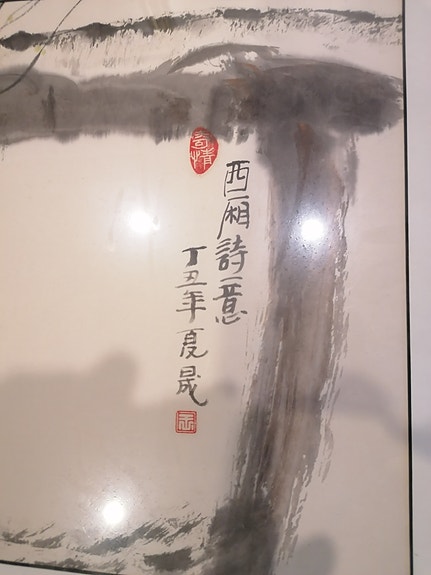 西厢詩意
丁丑年夏晟